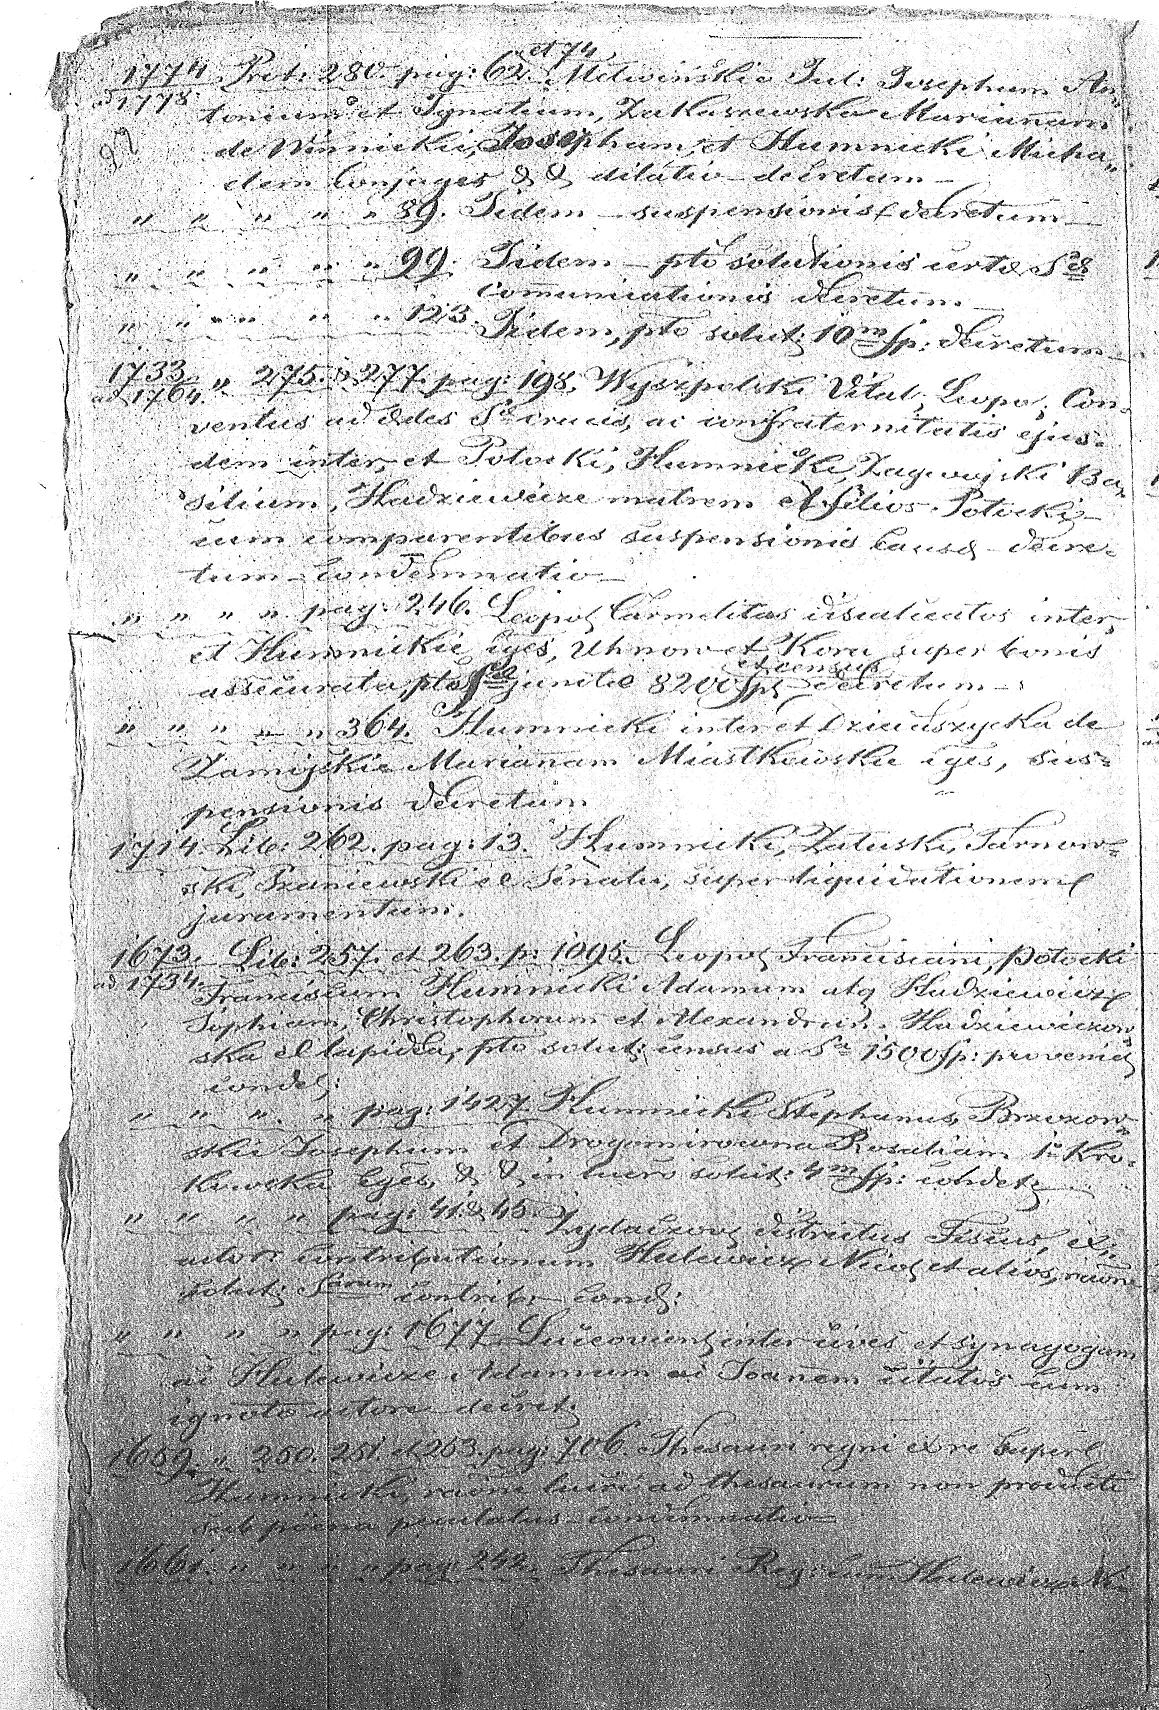 et 74
1774 Prot: 280. pag: 62. Metwińskie Jul: Josephum An„
ad 1778. tonium et Ignatium, Zakaszewska Mariannam
de Winnickie, Josepham, et Humnicki Micha„
elem Conjuges & & dilatio decretum
„ „ „ „ „ 89. Iidem – suspensionis decretum
„ „ „ „ „ 99. Iidem – pto solutionis certæ Sæ
communicationis decretum
„ „ „ „ „ 123 Iidem, pto solut: 10m fp: decretum
1733 „ 275. & 277. pag: 198. Wyszpolski Vital, Leopo, Con„
ad 1764. ventus ad ædes S. crucis, ac confraternitatis ejus„
dem inter, et Potocki, Humnicki, Zagwojski Ba„
silium, Hadziewicze matrem et filios. Potocki
cum comparentibus suspensionis causæ – decre„
tum – condemnatio –
„ „ „ „ pag: 246. Leopol Carmelitas discalceatos inter,
et Humnickie Cjges, Uhnow et Kora super bonis
et census
assecurata, pto junctæ 8200 fp decretum
„ „ „ „ „ 364. Humnicki inter et Dzieduszycka de
Zamojskie Mariannam Miastkowskie cjges, sus„
pensionis decretum
1714 Lib: 262. pag: 13. Humnicki, Załuski, Tarnow„
ski, Szaniewski ex Senatu, super liquidationem
juramentum.
1673. Lib: 257. et 263. p: 1095. Leopol Franciscani, Potocki
ad 1734. Franciscum Humnicki Adamum atq Hadziewicze
Sophiam, Christophorum et Alexandrum. Hadziewiczow
ska et lapidea, pto solut: census a Sa 1500 fp: provenien
condel:
„ „ „ „ pag: 1427 Humnicki Stephanus, Brzozow„
skie Josephum et Drogomirowna Rosaliam 1o Kro„
kowska Cjges, & & in lucro solut: 4m fp: condel
„ „ „ „ pag: 41 & 45. Zydaczov districtus Fiscus, ex„
actor contributionum Hulewicz Nicol et alios, raone
solut: Sarum contrib: cond:
„ „ „ „ pag: 1677 Luceoviens inter cives et synagogam
ac Hulewicze Adamum ac Joanem citatos cum
ignoto actore decret.
1659. „ 250. 251. et 253. pag: 706. Thesauri regni ex re super
Humnicki, raone lucri ad thesaurum non producti
sub pœna peculatus – condemnatio
1661. „ „ „ „ pag 242. Thesauri Reg: cum Hulewicz Ni„